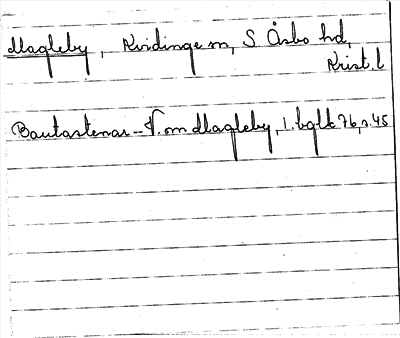 Magleby, Kvidinge sn, S Åsbo hd,
Krist. l
Bautastenar – V. om Magleby, 1. bglb 76, s. 45